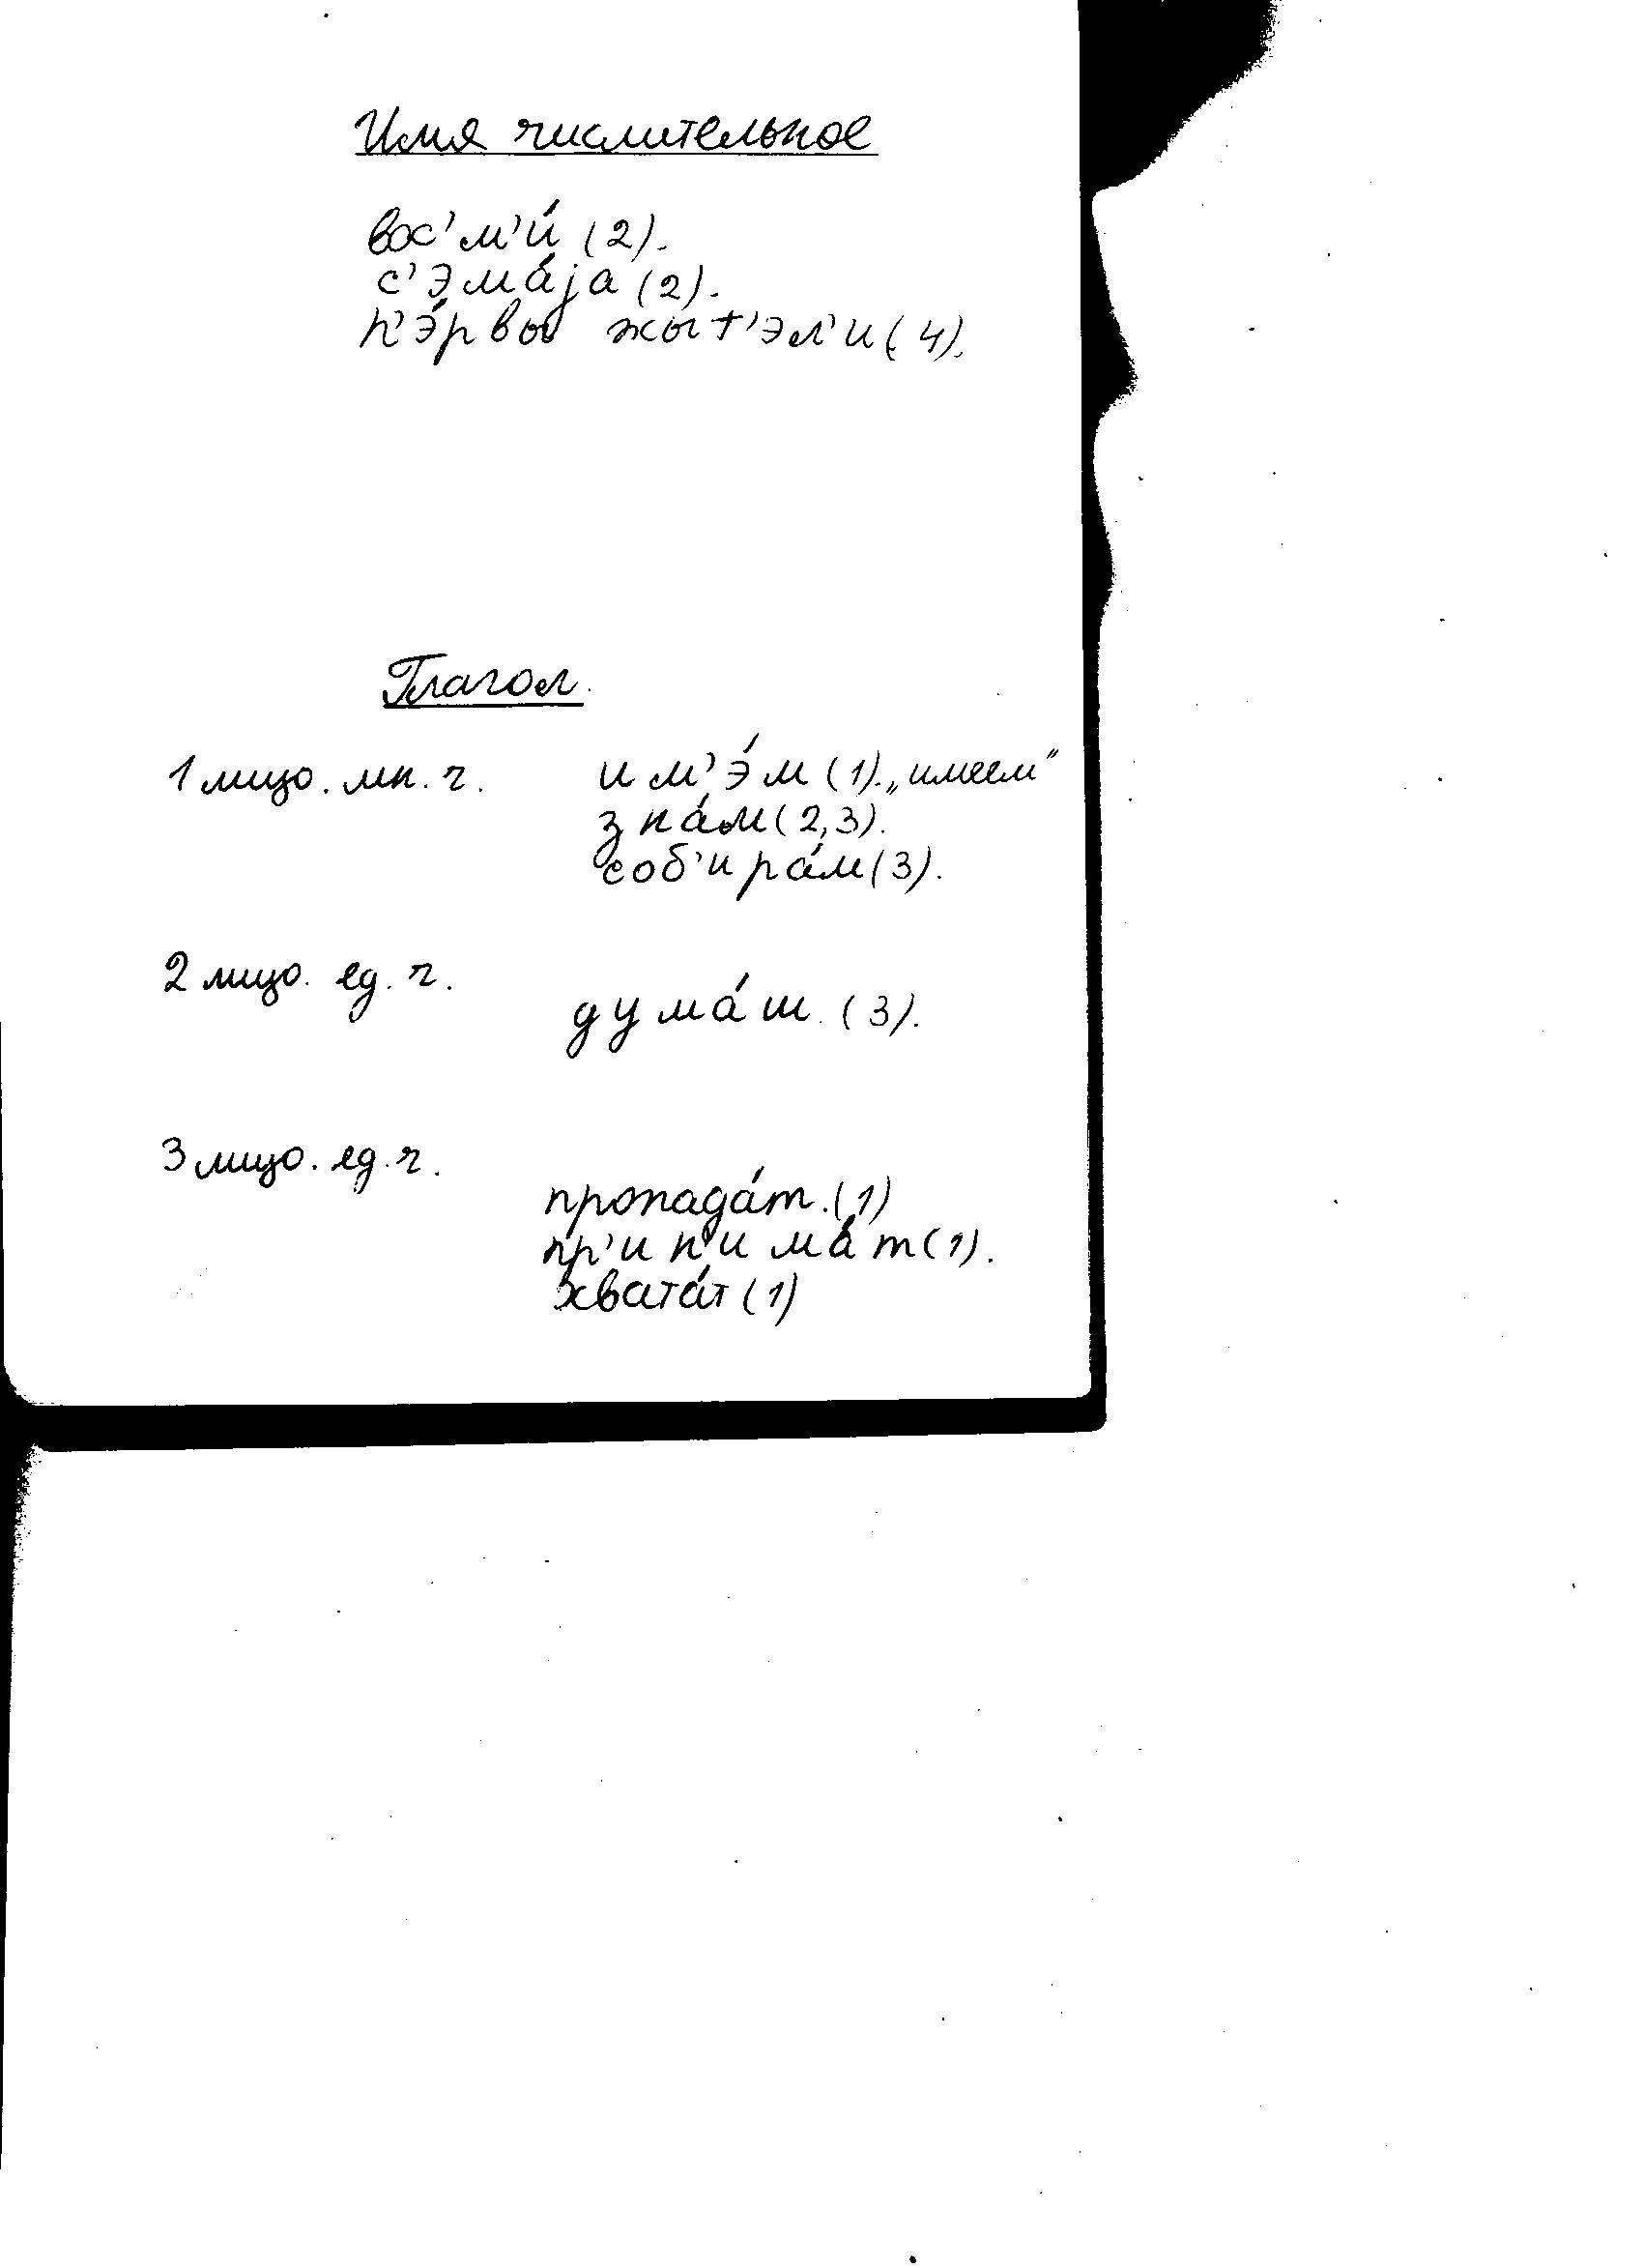 Имя числительное
вос'м'и́ (2).
с'эма́jа (2).
п'э́рвы жы́т'эл'и (4).
Глагол.
1 лицо. мн. ч. им'э́м (1). „имеем"
зна́м (2,3).
соб'ира́м (3).
2 лицо. ед. ч.
дума́ш. (3).
3 лицо. ед. ч.
пропада́т. (1)
пр'ин'има́т (1).
хвата́т (1)